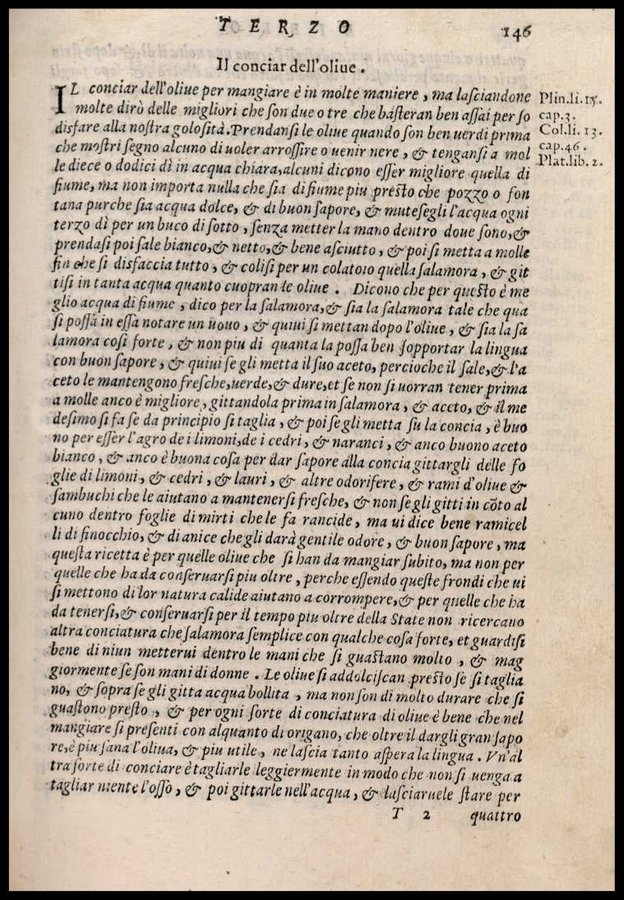 TERZO 146
Il conciar dell'oliue.
IL conciar dell'oliue per mangiare è in molte maniere, ma lasciandone
molte dirò delle migliori che son due o tre che basteran ben assai per so
disfare alla nostra golosità. Prendansi le oliue quando son ben uerdi prima
che mostri segno alcuno di uoler arrossire o uenir nere, & tengansi a mol
le diece o dodici dì in acqua chiara, alcuni dicono esser migliore quella di
fiume, ma non importa nulla che sia di fiume piu presto che pozzo o fon
tana purche sia acqua dolce, & di buon sapore, & mutesegli l'acqua ogni
terzo dì per un buco di sotto, senza metter la mano dentro doue sono, &
prendasi poi sale bianco, & netto, & bene asciutto, & poi si metta a molle
fin che si disfaccia tutto, & colisi per un colatoio quella salamora, & git
tisi in tanta acqua quanto cuopran le oliue. Dicono che per questo è me
glio acqua di fiume, dico per la salamora, & sia la salamora tale che qua
si possa in essa notare un uouo, & quiui si mettan dopo l'oliue, & sia la sa
lamora così forte, & non piu di quanta la possa ben sopportar la lingua
con buon sapore, & quiui se gli metta il suo aceto, percioche il sale, & l'a
ceto le mantengono fresche, uerde, & dure, et se non si uorran tener prima
a molle anco è migliore, gittandola prima in salamora, & aceto, & il me
desimo si fa se da principio si taglia, & poi se gli metta su la concia, è buo
no per esser l'agro de i limoni, de i cedri, & naranci, & anco buono aceto
bianco, & anco è buona cosa per dar sapore alla concia gittargli delle fo
glie di limoni, & cedri, & lauri, & altre odorifere, & rami d'oliue &
sambuchi che le aiutano a mantenersi fresche, & non se gli gitti in cõto al
cuno dentro foglie di mirti che le fa rancide, ma ui dice bene ramicel
li di finocchio, & di anice che gli darà gentile odore, & buon sapore, ma
questa ricetta è per quelle oliue che si han da mangiar subito, ma non per
quelle che ha da conseruarsi piu oltre, perche essendo queste frondi che ui
si mettono di lor natura calide aiutano a corrompere, & per quelle che ha
da tenersi, & conseruarsi per il tempo piu oltre della State non ricercano
altra conciatura che salamora semplice con qualche cosa forte, et guardisi
bene di niun metterui dentro le mani che si guastano molto, & mag
giormente se son mani di donne. Le oliue si addolciscan presto se si taglia
no, & sopra se gli gitta acqua bollita, ma non son di molto durare che si
guastono presto, & per ogni sorte di conciatura di oliue è bene che nel
mangiare si presenti con alquanto di origano, che oltre il dargli gran sapo
re, è piu sana l'oliua, & piu utile, ne lascia tanto aspera la lingua. Vn'al
tra sorte di conciare è tagliarle leggiermente in modo che non si uenga a
tagliar niente l'osso, & poi gittarle nell'acqua, & lasciaruele stare per
T 2 quattro
Plin.li.15.
cap.3.
Col.li. 13.
cap.46.
Plat.lib. 2.